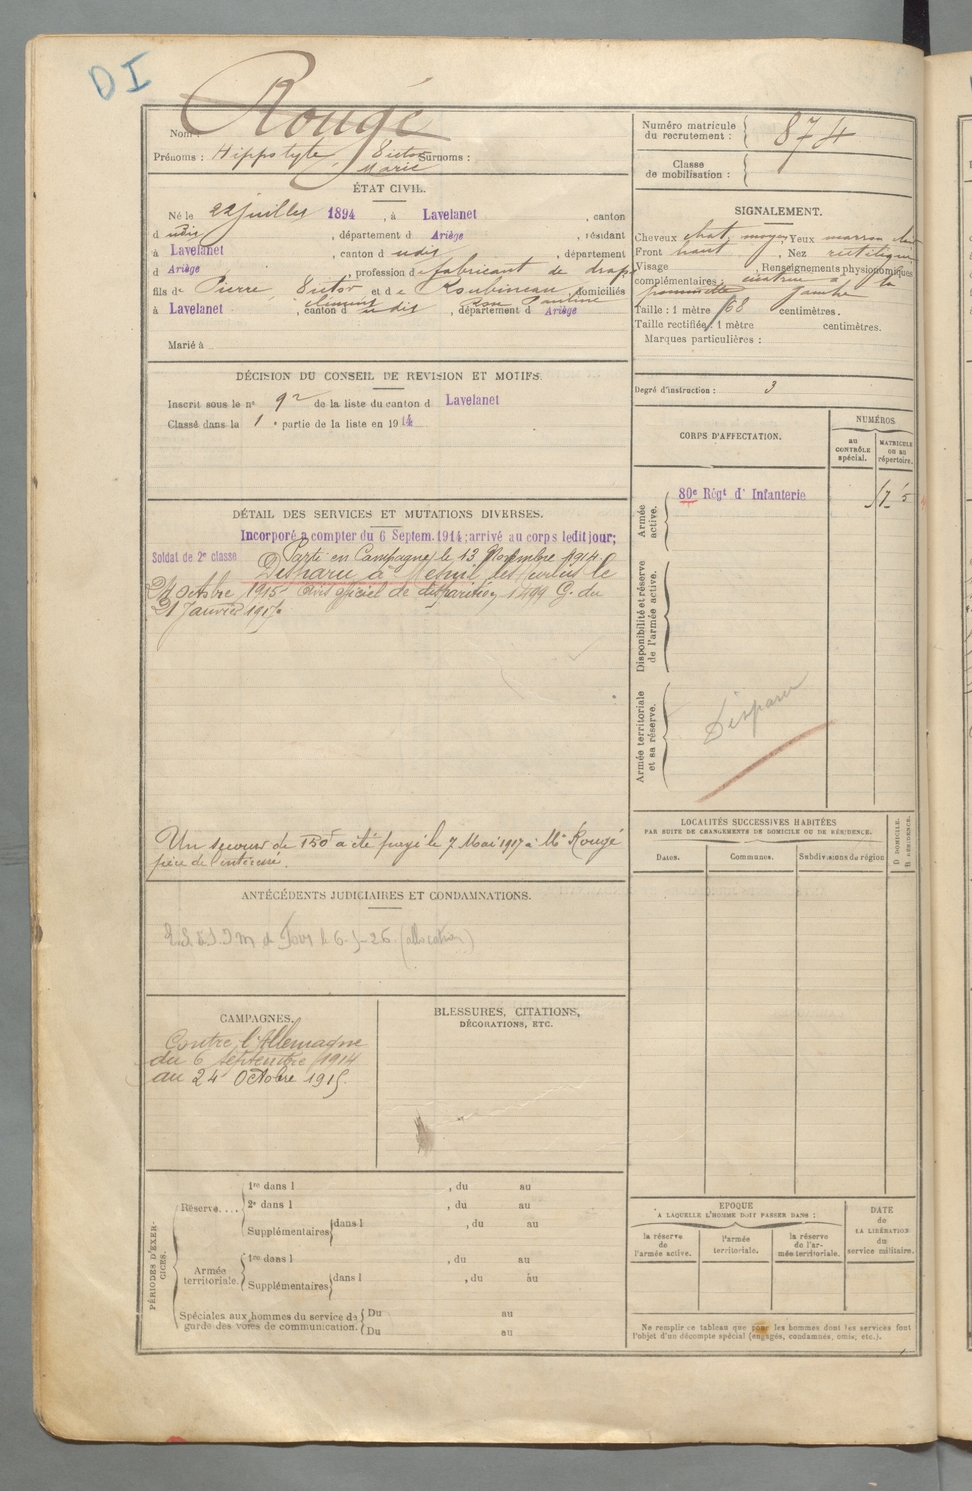 DI
Nom : Rougé
Prénoms : Hippolyte Victor Surnoms :
Marie
ÉTAT CIVIL.
Né le 22 juillet 1894, à Lavelanet, canton
d udit, département d Ariège, résidant
à Lavelanet, canton d udit, département
d Ariège, profession de fabricant de draps
fils de Pierre Victor et de Roubineau, domiciliés
Clément Rose Pauline
à Lavelanet, canton d udit, département d Ariège
Marié à
DÉCISION DU CONSEIL DE REVISION ET MOTIFS.
Inscrit sous le n° 92 de la liste du canton d Lavelanet
Classé dans la 1e partie de la liste en 1914
DÉTAIL DES SERVICES ET MUTATIONS DIVERSES.
Incorporé à compter du 6 Septem. 1914; arrivé au corps ledit jour;
Soldat de 2e classe Parti en Campagne le 13 Novembre 1914
Disparu à Mesnil les Hurlus le
24 octobre 1915 Avis officiel de disparition 1499 G. du
21 Janvier 1916
Un secours de 150f a été payé le 7 Mai 1917 à Mr Rougé
père de l'intéressé.
ANTÉCÉDENTS JUDICIAIRES ET CONDAMNATIONS.
(allocation)
CAMPAGNES.
Contre l'Allemagne
du 6 septembre 1914
au 24 Octobre 1915.
BLESSURES, CITATIONS,
DÉCORATIONS, ETC.
PÉRIODES D'EXERCICES.
Réserve....
1re dans l , du au
2e dans l , du au
Supplémentaires dans l , du au
Armée territoriale.
1re dans l , du au
Supplémentaires dans l , du au
Spéciales aux hommes du service de Du au
garde des voies de communication. Du au
Numéro matricule
du recrutement : 874
Classe
de mobilisation :
SIGNALEMENT.
Cheveux chat. moyen, Yeux marron clair
Front haut, Nez rectiligne
Visage, Renseignements physionomiques
complémentaires : cicatrice à la
pommette gauche
Taille : 1 mètre 68 centimètres.
Taille rectifiée : 1 mètre centimètres.
Marques particulières :
Degré d'instruction : 3
CORPS D'AFFECTATION.
NUMÉROS
au CONTRÔLE spécial.
MATRICULE OU AU répertoire.
Armée active.
80e Régt d' Infanterie
Disponibilité et réserve de l'armée active.
Armée territoriale et sa réserve.
Disparu
LOCALITÉS SUCCESSIVES HABITÉES
PAR SUITE DE CHANGEMENTS DE DOMICILE OU DE RÉSIDENCE.
Dates.
Communes.
Subdivisions de région
D DOMICILE.
R RÉSIDENCE.
EPOQUE
A LAQUELLE L'HOMME DOIT PASSER DANS :
la réserve de l'armée active.
l'armée territoriale.
la réserve de l'armée territoriale.
DATE de LA LIBÉRATION du service militaire.
Ne remplir ce tableau que pour les hommes dont les services font
l'objet d'un décompte spécial (engagés, condamnés, omis, etc.).